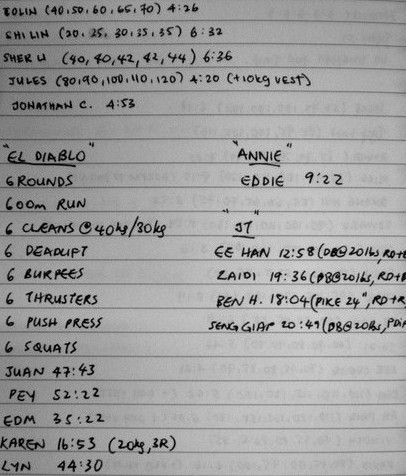 COLIN (40,50,60,65,70) 4:26
SHILIN (20, 25, 30, 35, 35) 6:32
SHER LI (40, 40, 42, 42, 44) 6:36
JULES (80,90,100,110,120) 4:20 (+10kg VEST)
JONATHAN C. 4:53
"EL DIABLO"
6 ROUNDS
600m RUN
6 CLEANS @ 40kg/30kg
6 DEADLIFT
6 BURPEES
6 THRUSTERS
6 PUSH PRESS
6 SQUATS
JUAN 47:43
PEY 52:22
EDM 35:22
KAREN 16:53 (20kg, 3R)
LYN 44:30
"ANNIE"
EDDIE 9:22
"JT"
EE HAN 12:58 (DB@20lbs, RD+
ZAIDI 19:36 (DB@20lbs, RD+
BEN H. 18:04 (PIKE 24", RD+R
SENG GIAP 20:49 (DB@20lbs,